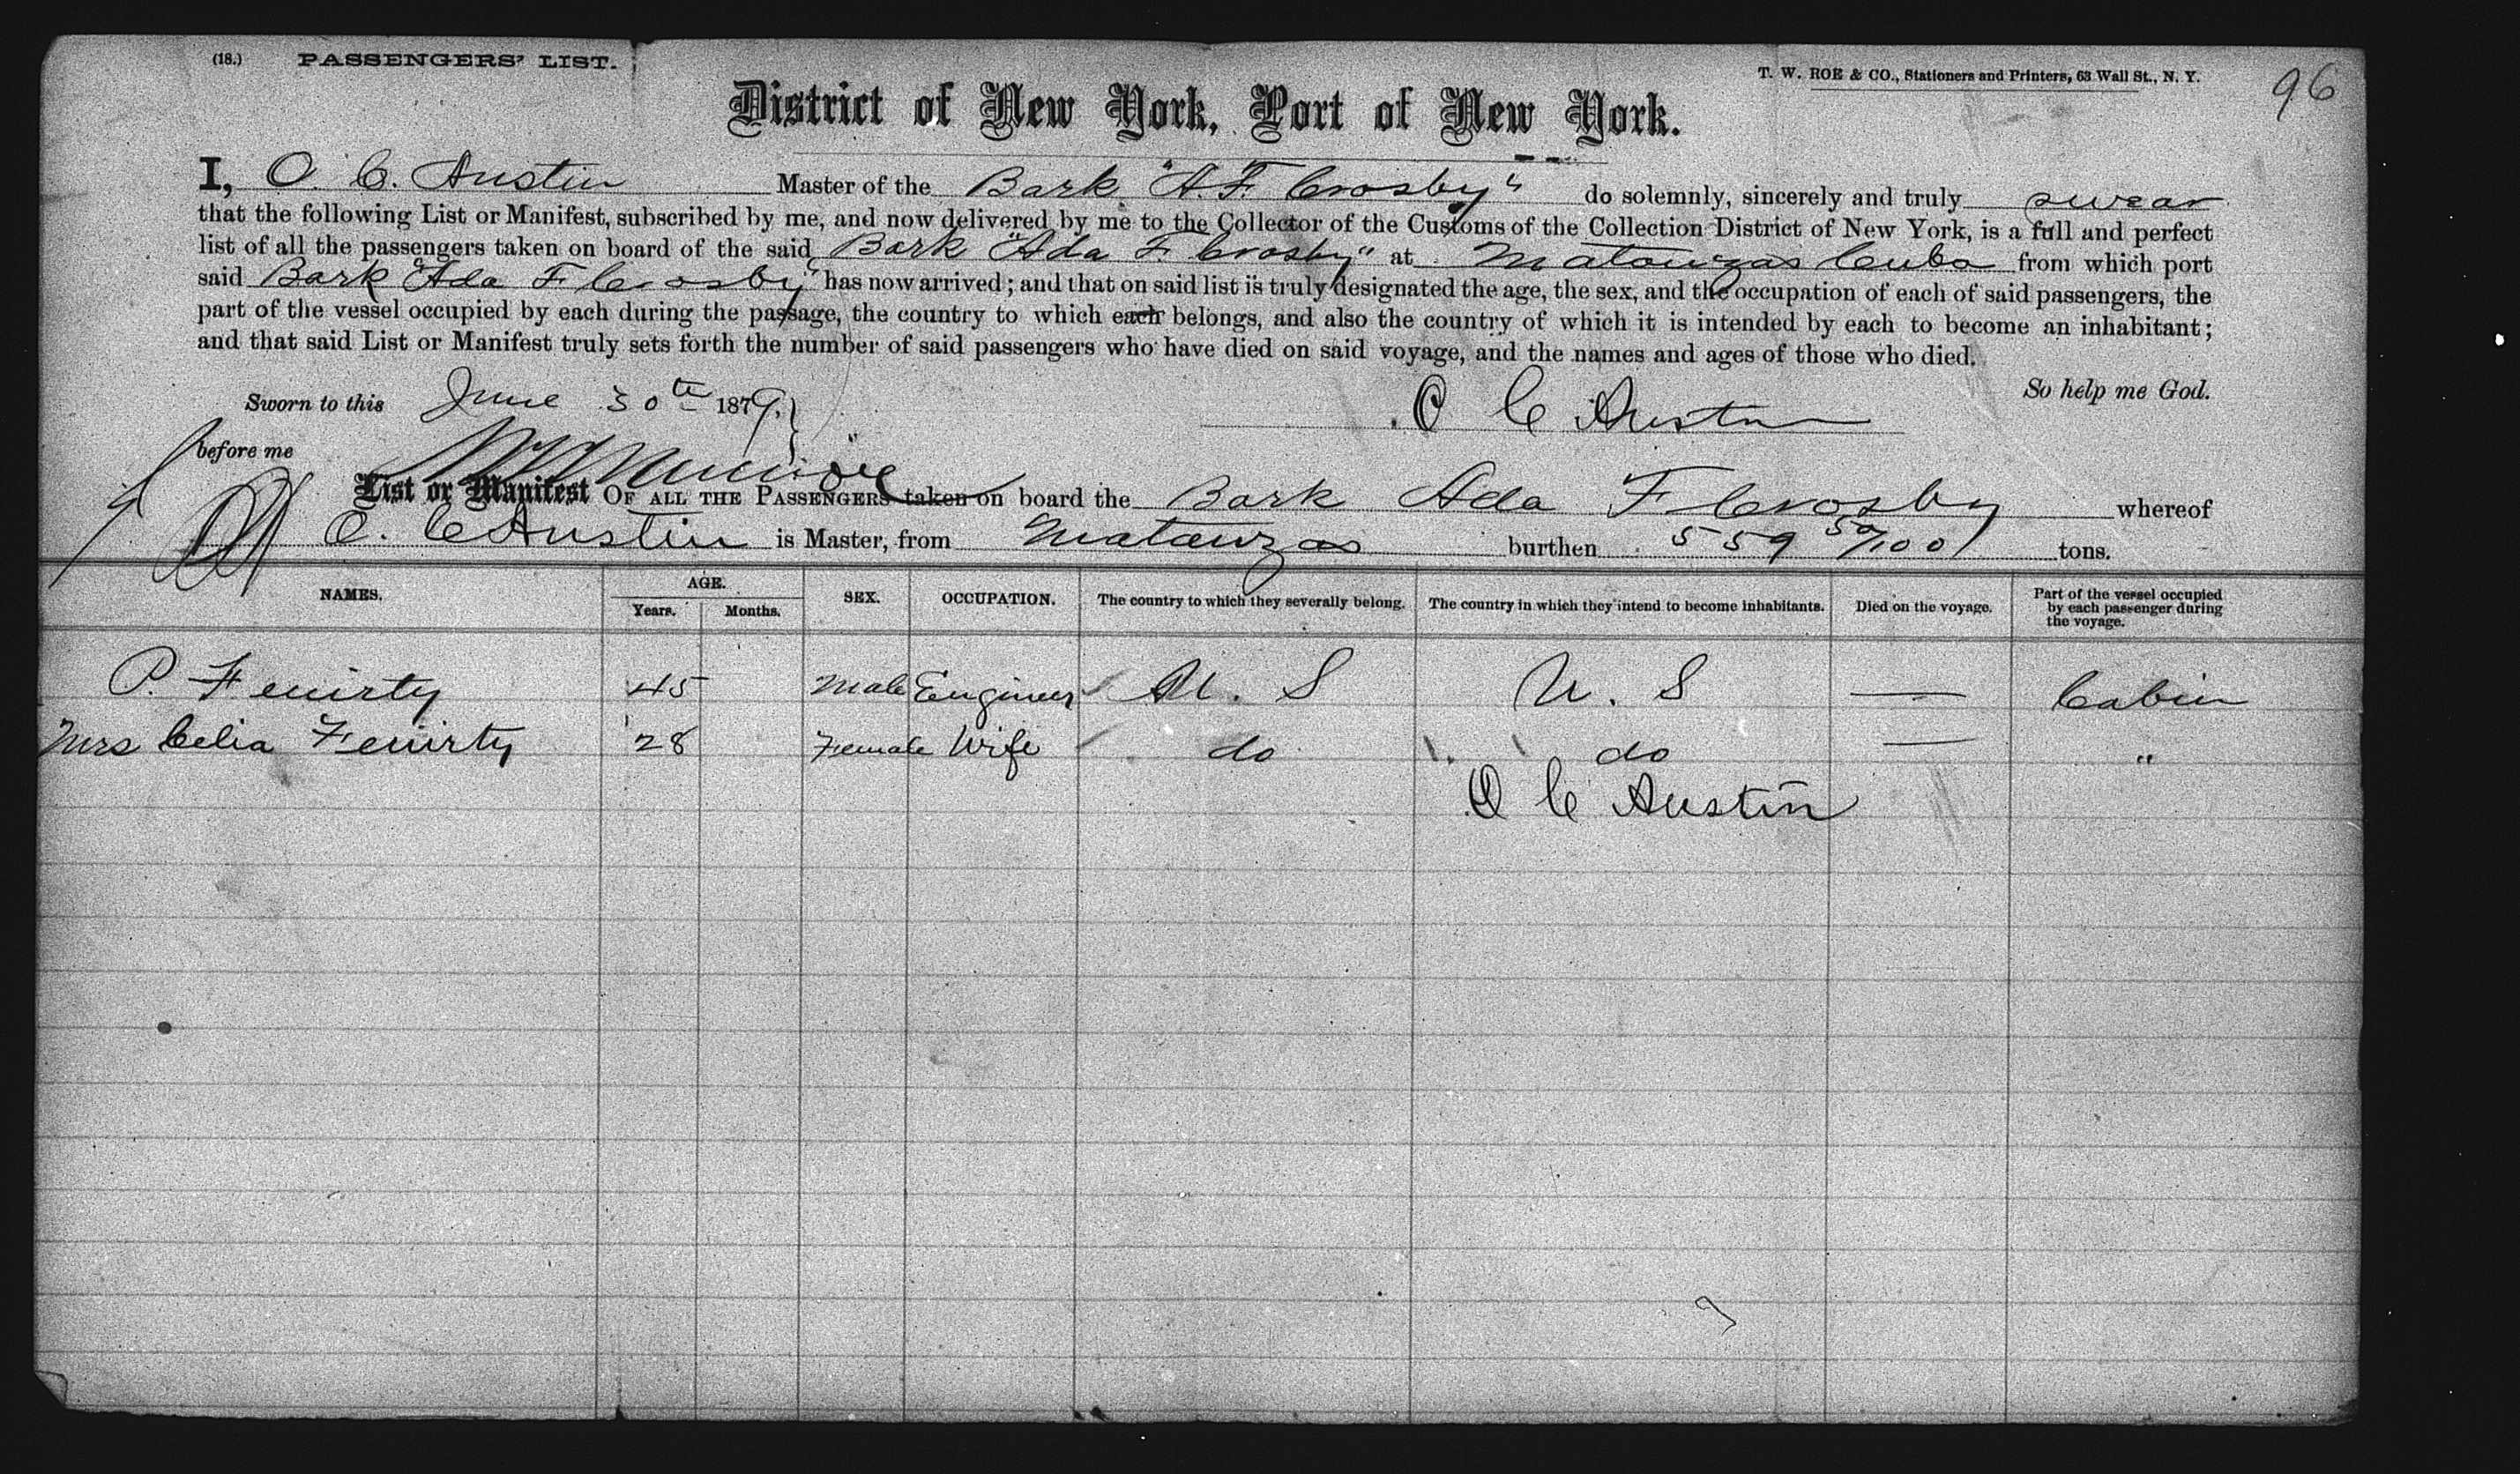 (18.) PASSENGERS' LIST.
T. W. ROE & CO., Stationers and Printers, 63 Wall St., N. Y.
96
District of New York, Port of New York.
I, O. C. Austin Master of the Bark "A. F. Crosby" do solemnly, sincerely and truly swear
that the following List or Manifest, subscribed by me, and now delivered by me to the Collector of the Customs of the Collection District of New York, is a full and perfect
list of all the passengers taken on board of the said Bark "Ada F Crosby" at Matanzas Cuba from which port
said Bark "Ada F Crosby" has now arrived; and that on said list is truly designated the age, the sex, and the occupation of each of said passengers, the
part of the vessel occupied by each during the passage, the country to which each belongs, and also the country of which it is intended by each to become an inhabitant;
and that said List or Manifest truly sets forth the number of said passengers who have died on said voyage, and the names and ages of those who died.
So help me God.
Sworn to this June 30th 1879.
O C Austin
before me
List or Manifest OF ALL THE PASSENGERS taken on board the Bark Ada F Crosby whereof
O. C Austin is Master, from Matanzas burthen 559 50/100 tons.
NAMES. AGE. SEX. OCCUPATION. The country to which they severally belong. The country in which they intend to become inhabitants. Died on the voyage. Part of the vessel occupied by each passenger during the voyage.
Years. Months.
P. Feuirty 45 Male Engineer U. S U. S — Cabin
Mrs Celia Feuirty 28 Female Wife do do — "
O C Austin